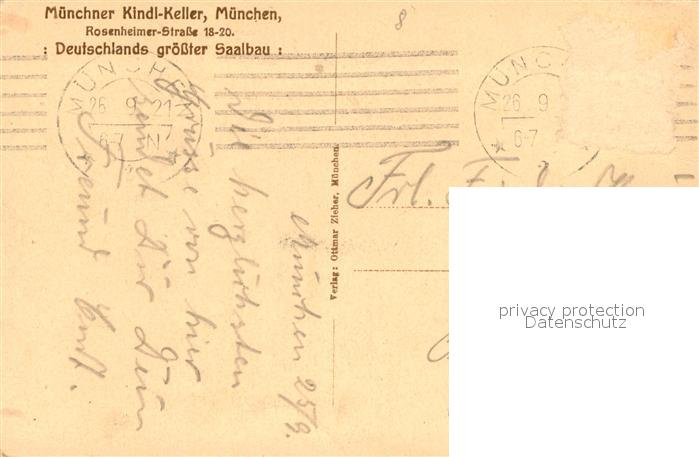 Münchner Kindl-Keller, München,
Rosenheimer-Straße 18-20.
: Deutschlands größter Saalbau :
8
MÜNCHEN
26 9 21
6-7 N
MÜNC
26 9
6-7
München 25/9.
Die herzlichsten
Grüsse von hier
sendet Dir Dein
Freund
Verlag: Ottmar Zieher, München.
Frl.
privacy protection
Datenschutz